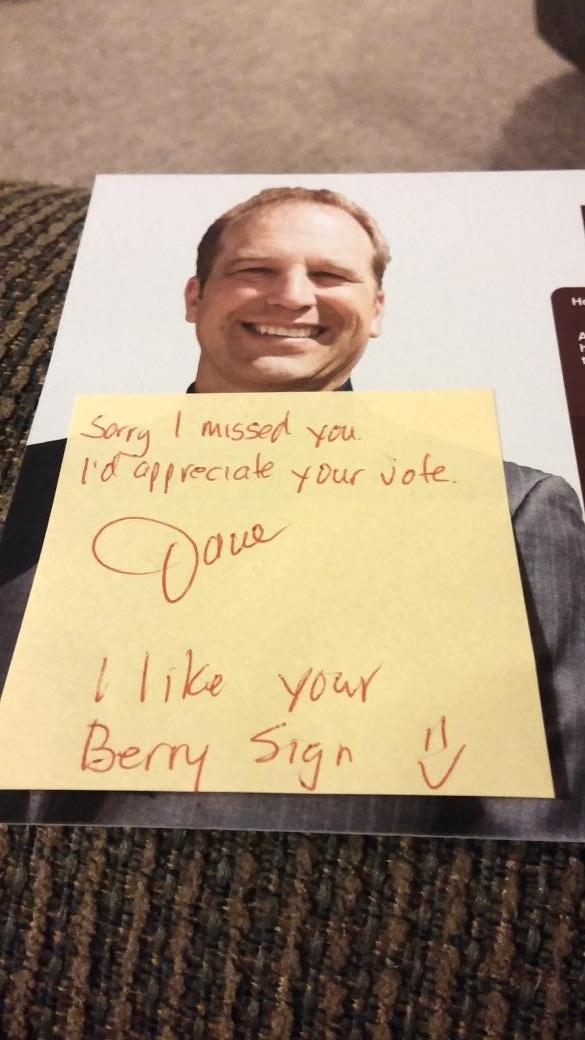 Sorry I missed you.
I'd appreciate your vote.
Dave
I like your
Berry Sign